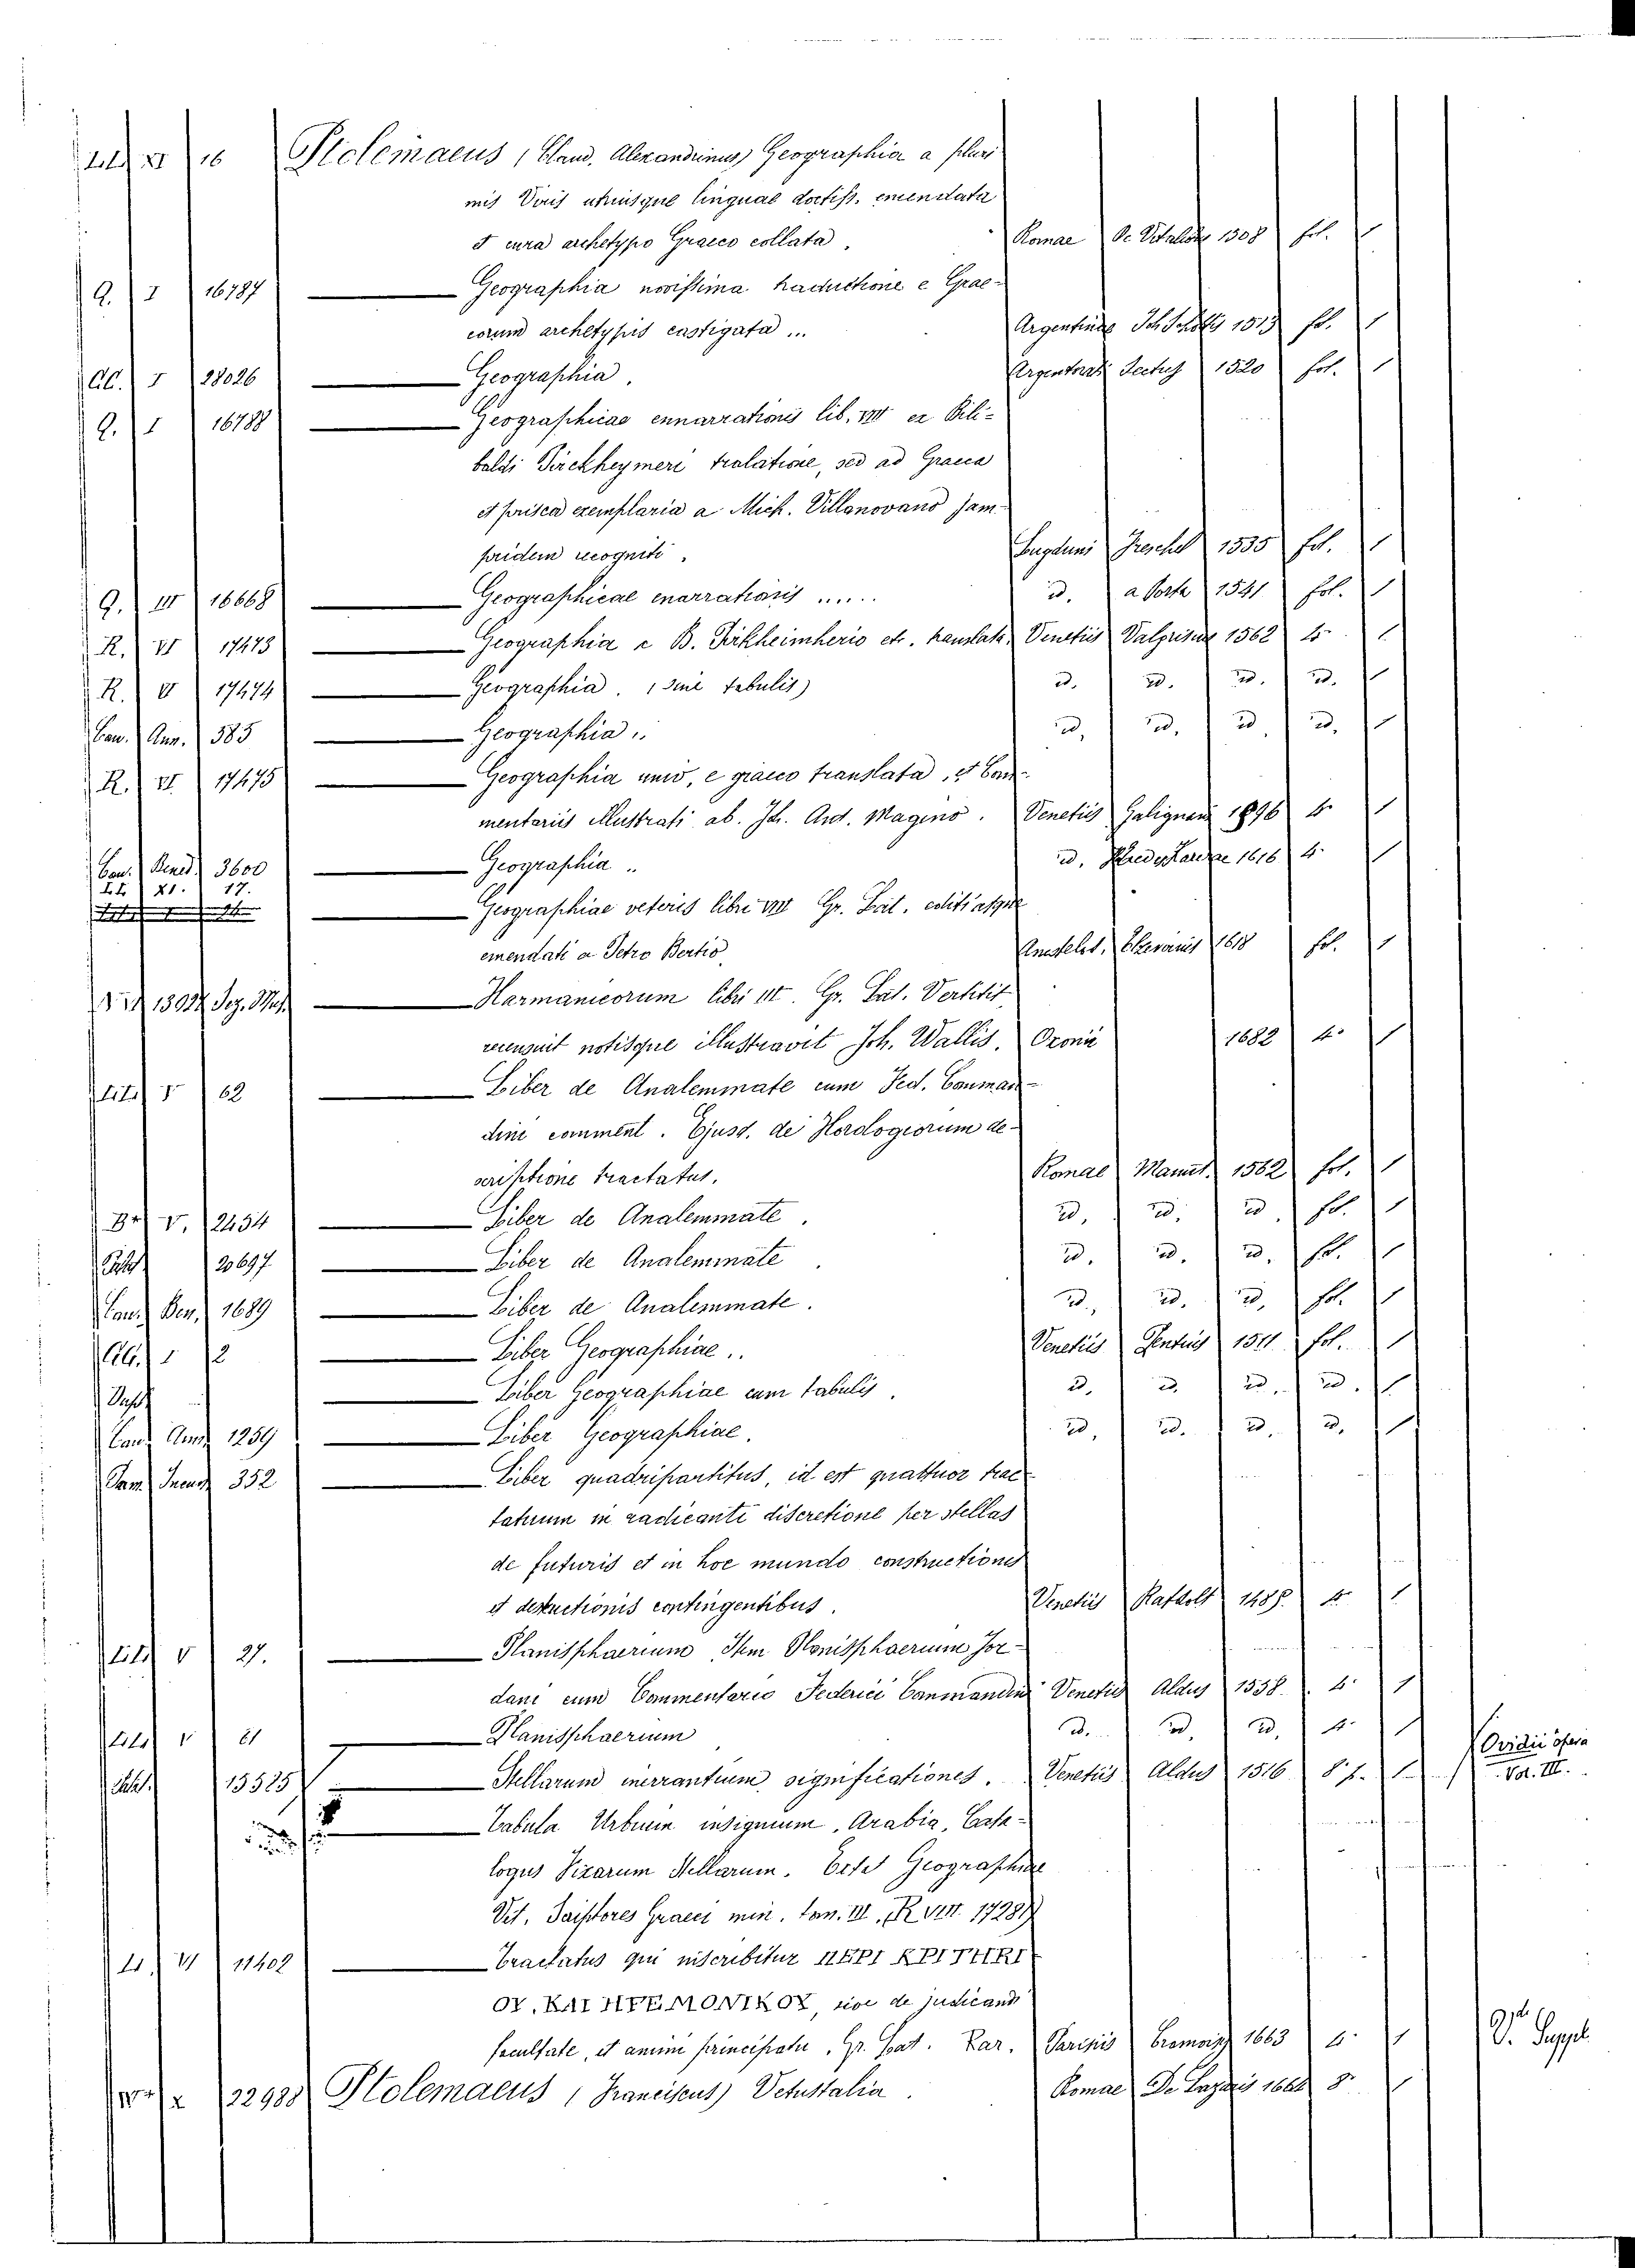 XI 16 Ptolemaeus (Claud. Alexandrinus) Geographia a pluri
mis Viris utriusque linguae doctiss. emendata
et cura archetypo Graeco collata. Romae De Vitalibus 1508 fol. 1
Q. I 16787 Geographia novissima traductione e Grae-
corum archetypis castigata ... Argentinae Joh. Schottg 1513 fol. 1
I 28026 Geographia. 1520 fol. 1
Q. I 16788 Geographicae ennarrationis lib. VIII ex Bili-
baldi Pirckheymeri tralatione, sed ad Graeca
et prisca exemplaria a Mich. Villanovano jam
pridem recogniti. Lugduni Trechsel 1535 fol. 1
Q. III 16668 Geographicae enarrationis ..... id. a Porta 1541 fol. 1
R. VI 17473 Geographia a B. Pirkheimherio etc. translata, Venetiis Valgrisius 1562 4° 1
R. VI 17474 Geographia. (sine tabulis) id. id. id. id. 1
Can. Ann. 585 Geographia.. id. id. id. id. 1
R. VI 17475 Geographia univ. e graeco translata, et Com-
mentariis illustrati ab. Jh. Ant. Magino. Venetiis Galignani 1896 4° 1
Can. Bened. 3600 Geographia .. id. 1616 4° 1
XI. 17. Geographiae veteris libri VIII Gr. Lat. editi atque
emendati a Petro Bertio Amstelod. Elzevirius 1618 fol. 1
13027 Harmanicorum libri III. Gr. Lat. Vertitit
recensuit notisque illustravit Joh. Wallis. Oxonii 1682 4° 1
V 62 Liber de Analemmate cum Fed. Comman-
dini comment. Ejusd. de Hordogiorum de-
scriptione tractatus. Romae Manut. 1562 fol. 1
V. 2454 Liber de Analemmate. id. id. id. fol. 1
20697 Liber de Analemmate. id. id. id. fol. 1
Can. Ben. 1689 Liber de Analemmate. id. id. id. fol. 1
1 2 Liber Geographiae.. Venetiis Pentius 1511 fol. 1
Liber Geographiae cum tabulis. id. id. id. id. 1
Can. Ann. 1259 Liber Geographiae. id. id. id. id. 1
352 Liber quadripartitus, id est quattuor trac
tatuum in radicanti discretione per stellas
de futuris et in hoc mundo constructiones
et destructionis contingentibus. Venetiis Ratdolt 4° 1
V 27. Planisphaerium Item Planisphaerium Jor-
dani cum Commentario Federici Commandini Venetiis Aldus 1558 4° 1
V 61 Planisphaerium id. id. id. 4° 1
13525 Stellarum inerrantium significationes. Venetiis Aldus 1516 8° 1 Ovidii opera
Vol. III.
Tabula Urbium insignium, Arabia, Cata-
logus Fixarum Stellarum. Geographiae
Vet. Scriptores Graeci min. tom. III. R VIII. 17281)
VI 11402 Tractatus qui inscribitur ΠΕΡΙ ΚΡΙΤΗΡΙ
ΟΥ. ΚΑΙ ΗΓΕΜΟΝΙΚΟΥ, sive de judicandi
facultate, et animi principatu, Gr. Lat. Par. Parisiis Cramoisy 1663 4° 1 V. Suppl.
22988 Ptolemaeus (Franciscus) Vetustalia. Romae De Lazaris 8° 1